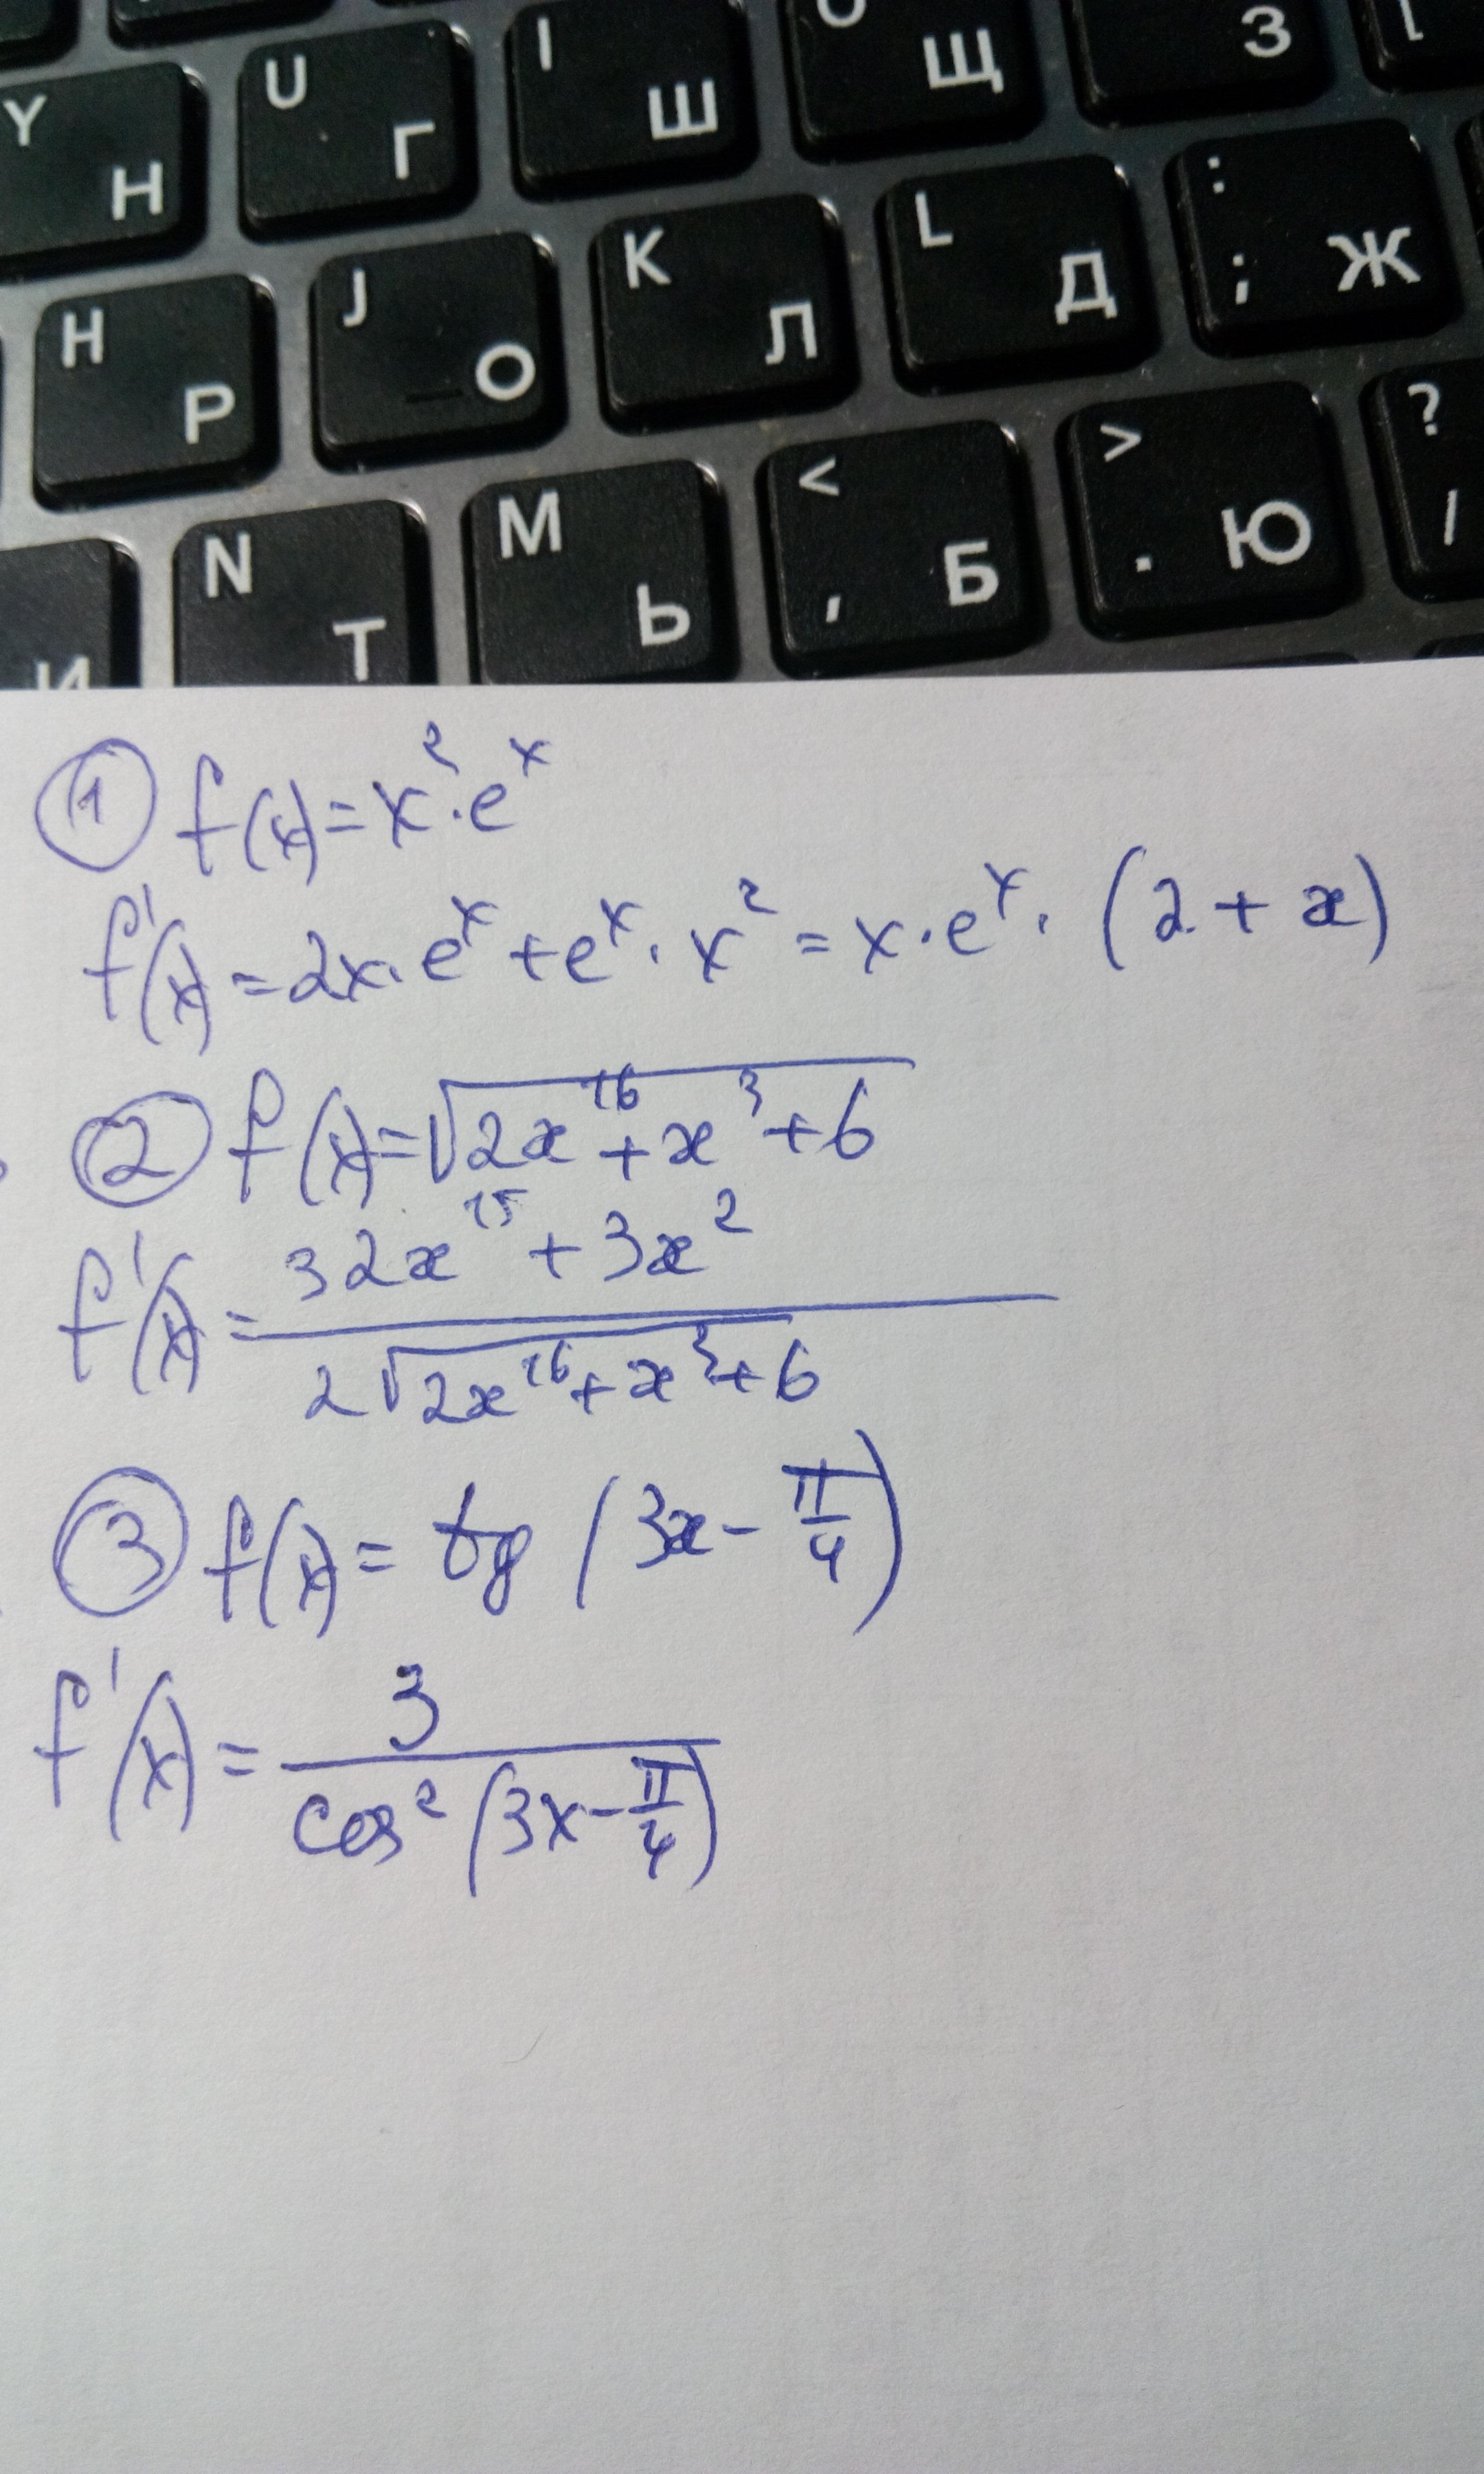 Y Н U Г I Ш O Щ З [
H Р J О K Л L Д : ; Ж
И N Т M Ь < , Б > . Ю ? /
① f(x)=x²·eˣ
f'(x)=2x·eˣ+eˣ·x²=x·eˣ·(2+x)
② f(x)=√(2x¹⁶+x³+6)
f'(x)=(32x¹⁵+3x²)/(2√(2x¹⁶+x³+6))
③ f(x)=tg(3x-π/4)
f'(x)=3/(cos²(3x-π/4))